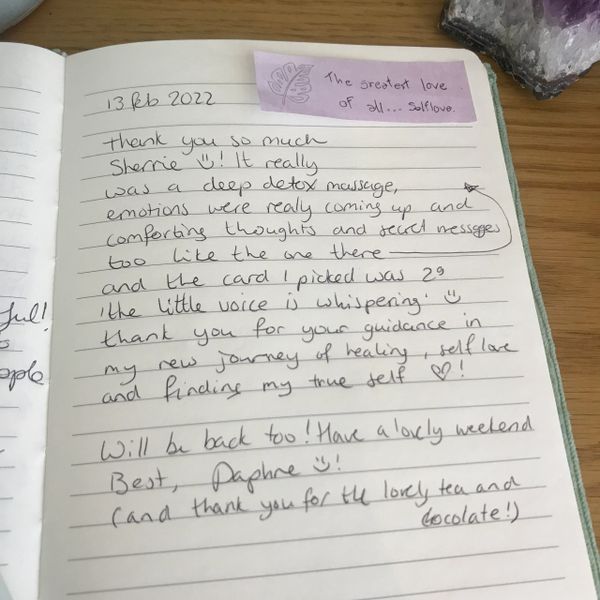 13 Feb 2022
The greatest love
of all... Selflove.
thank you so much
Sherrie ! It really
was a deep detox massage,
emotions were realy coming up and
comforting thoughts and secret messages
too like the one there
and the card I picked was 29
'the little voice is whispering'
thank you for your guidance in
my new journey of healing, self love
and finding my true self ♡!
Will be back too! Have a lovely weekend
Best, Daphne !
(and thank you for the lovely tea and
chocolate!)
ful!
ople